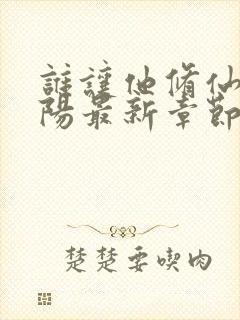 誰讓他脩仙
陽最新章節
楚楚要喫肉